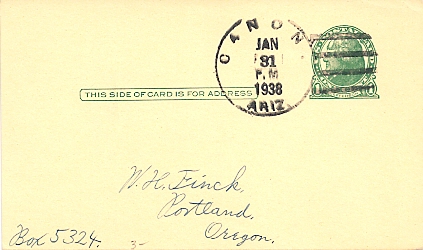 CANON
JAN
31
P.M
1938
ARIZ.
THIS SIDE OF CARD IS FOR ADDRESS
W. H. Finck,
Portland,
Oregon.
Box 5324.
3-